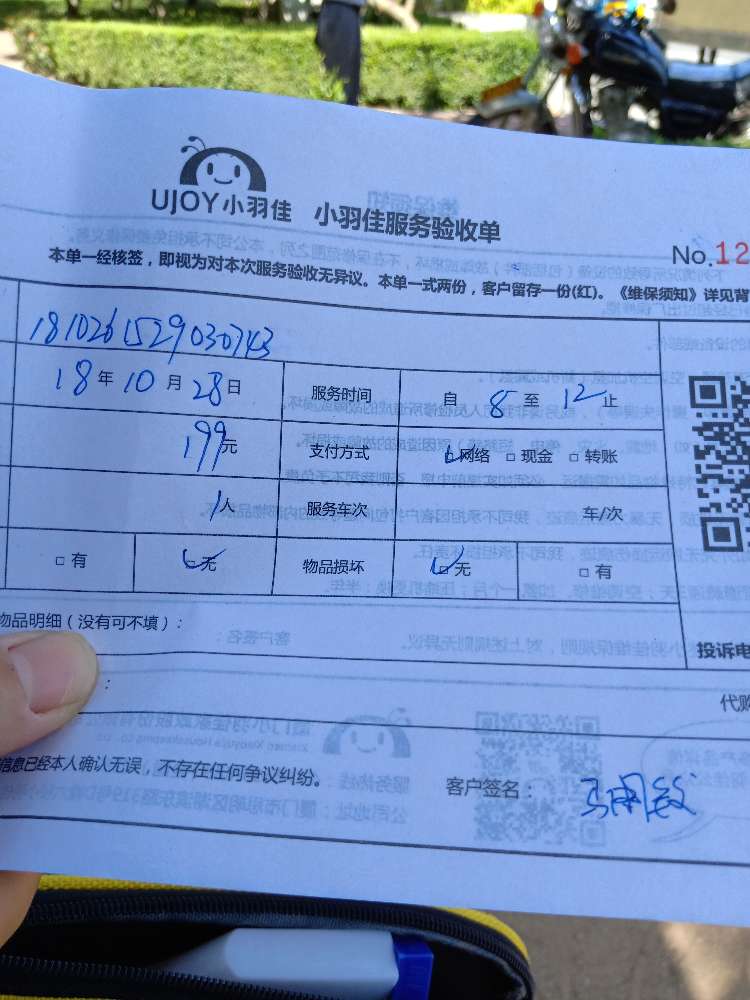 UJOY小羽佳 小羽佳服务验收单
No.12
本单一经核签，即视为对本次服务验收无异议。本单一式两份，客户留存一份(红)。《维保须知》详见背
1810261529030743
18年10月28日 服务时间 自 8 至 12 止
199元 支付方式 □网络 □现金 □转账
1人 服务车次 车/次
□有 □无 物品损坏 □无 □有
物品明细（没有可不填）：
投诉电
：
代购
信息已经本人确认无误，不存在任何争议纠纷。 客户签名：